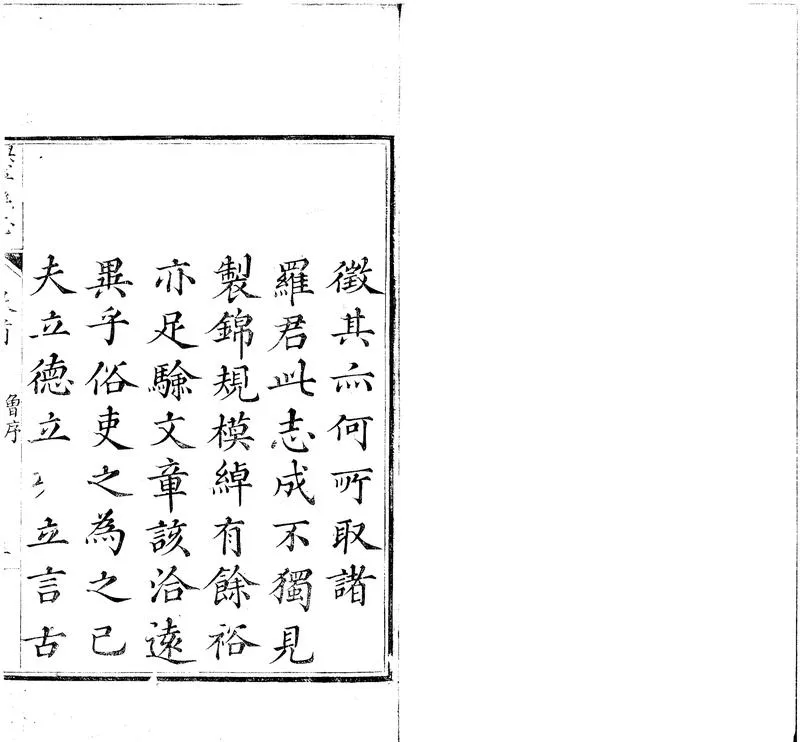 徵其亦何所取諸
羅君此志成不獨見
製錦規模綽有餘裕
亦足驗文章該洽遠
異乎俗吏之為之已
夫立德立立言古
魯序